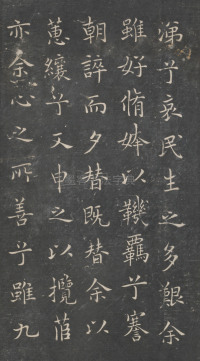 涕兮哀民生之多艱余
雖好脩姱以鞿羈兮謇
朝誶而夕替既替余以
蕙纕兮又申之以攬茝
亦余心之所善兮雖九